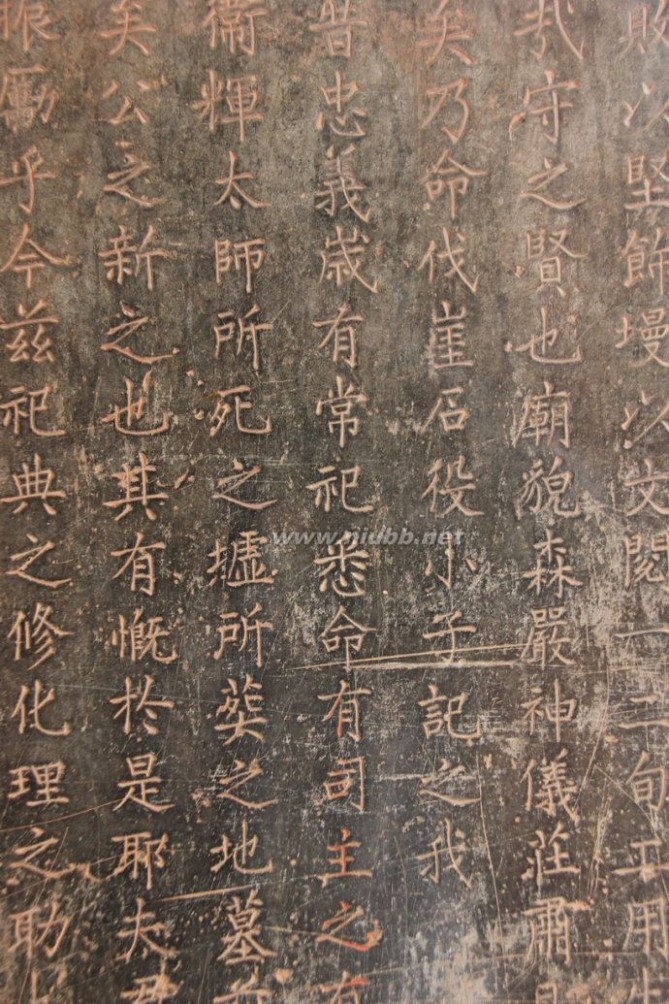 敗以堅飾墁以文閱一二旬工用
㢤守之賢也廟貌森嚴神儀莊肅
矣乃命伐崖石役小子記之我
昔忠義歲有常祀悉命有司主之有
衞輝太師所死之墟所葬之地墓
矣公之新之也其有慨於是耶夫君
振勵乎今兹祀典之修化理之助
www.niubb.net